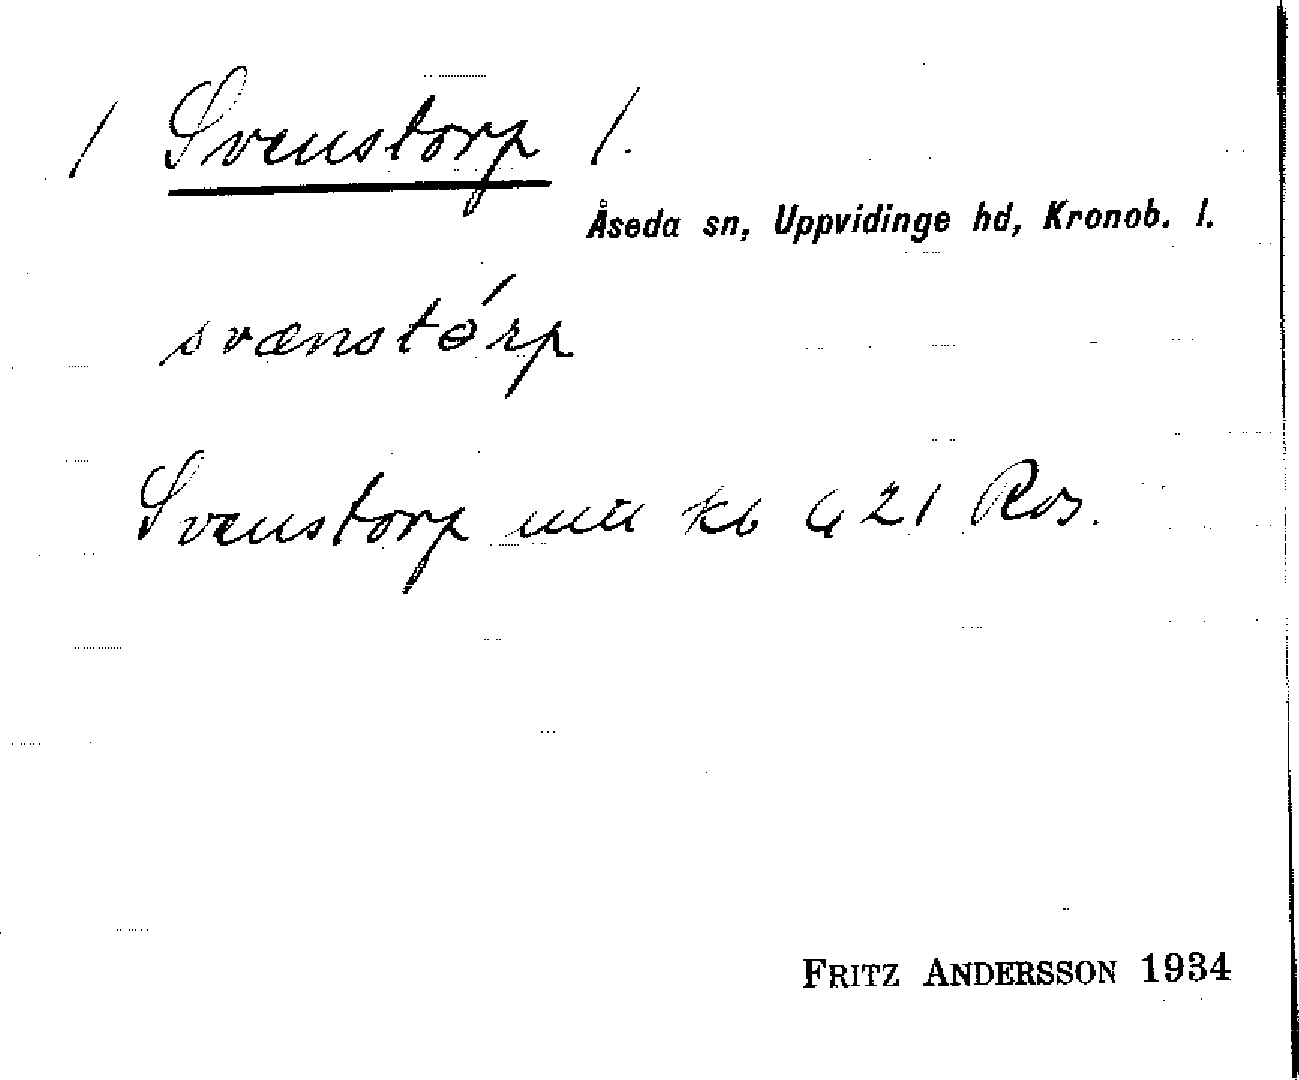 / Svenstorp /.
Åseda sn, Uppvidinge hd, Kronob. l.
svænstórp
Svenstorp kb 421 Ros.
FRITZ ANDERSSON 1934